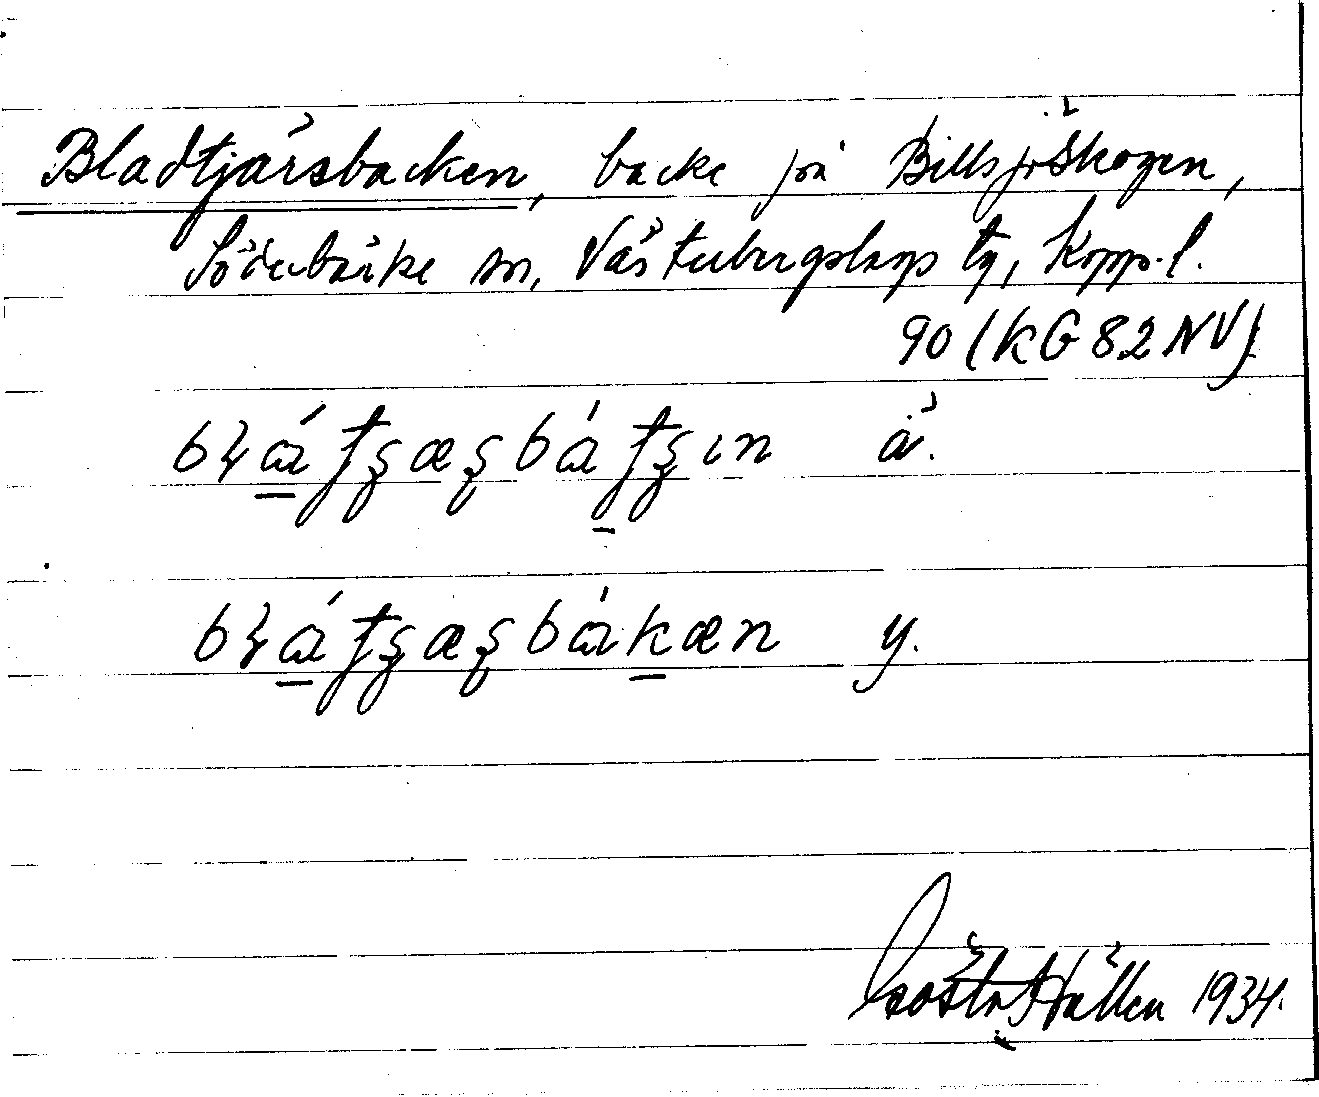 Bladtjärsbacken, backe på Billsjöskogen,
Söderbärke sn, Västerbergslags tg, Kopp. l.
90 (KG 82 NV)
ä.
y.
Gösta Hällen 1934.